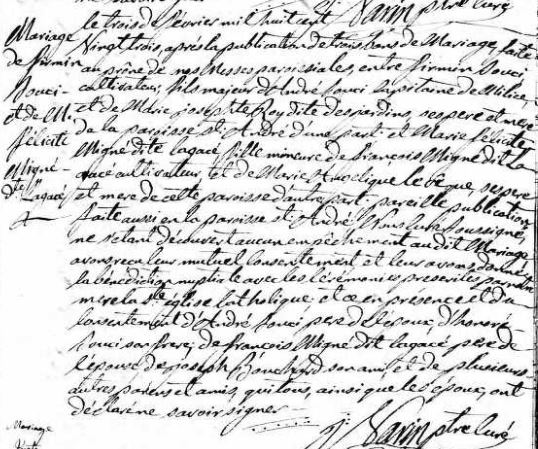 Varin ptre curé
Mariage
de firmin
Souci
et de M.
félicité
Migné
dt Lagacé
le trois de février mil huit cent
vingt trois, après la publication de trois bans de Mariage, faite
au prône de nos Messes paroissiales, entre firmin Souci
cultivateur, fils majeur d'André Souci Capitaine de Milice,
et de Marie josephte Roy dite desjardins, ses pere et mere
de la paroisse st. André d'une part; et Marie félicité
Migné dite lagacé fille mineure de françois Migné dit La
gacé cultivateur, et de Marie Angelique le bêque, ses pere
et mere de cette paroisse d'autre part; pareille publication
faite aussi en la paroisse st. André, Nous Curé soussigné,
ne s'étant découvert aucun empêchement au dit Mariage
avons reçu leur mutuel Consentement et leur avons donné
la bénédiction nuptiale avec les Cérémonies prescrites par notre
mere la ste église Catholique; et ce en presence et du
Consentement d'André Souci pere de l'époux, d'honoré
Souci son frere; de françois Migné dit lagacé pere de
l'épouse, de joseph Bouchard son ami et de plusieurs
autres parens et amis, qui tous, ainsi que les époux, ont
déclaré ne savoir signer
Varin ptre Curé
Mariage